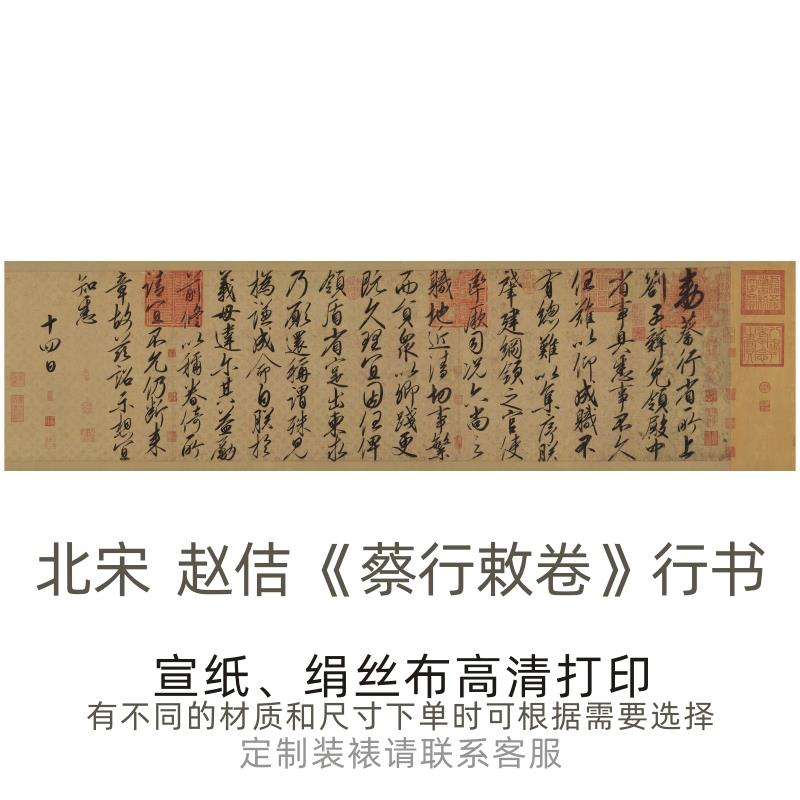 敕蔡行省所上
劄子辭免領殿中
省事具悉事不久
任難以仰成職不
有總難以集序朕
肇建綱領之官使
率厥司況六尚之
職地近清切事繁
而員衆以卿踐更
既久理宜因任俾
領盾省寔出柬求
乃願還稱謂殊見
撝謙成命自朕於
義毋違尔其益勵
前脩以稱眷倚所
請宜不允仍斷來
章故茲詔示想宜
知悉
十四日
北宋 赵佶《蔡行敕卷》行书
宣纸、绢丝布高清打印
有不同的材质和尺寸下单时可根据需要选择
定制装裱请联系客服